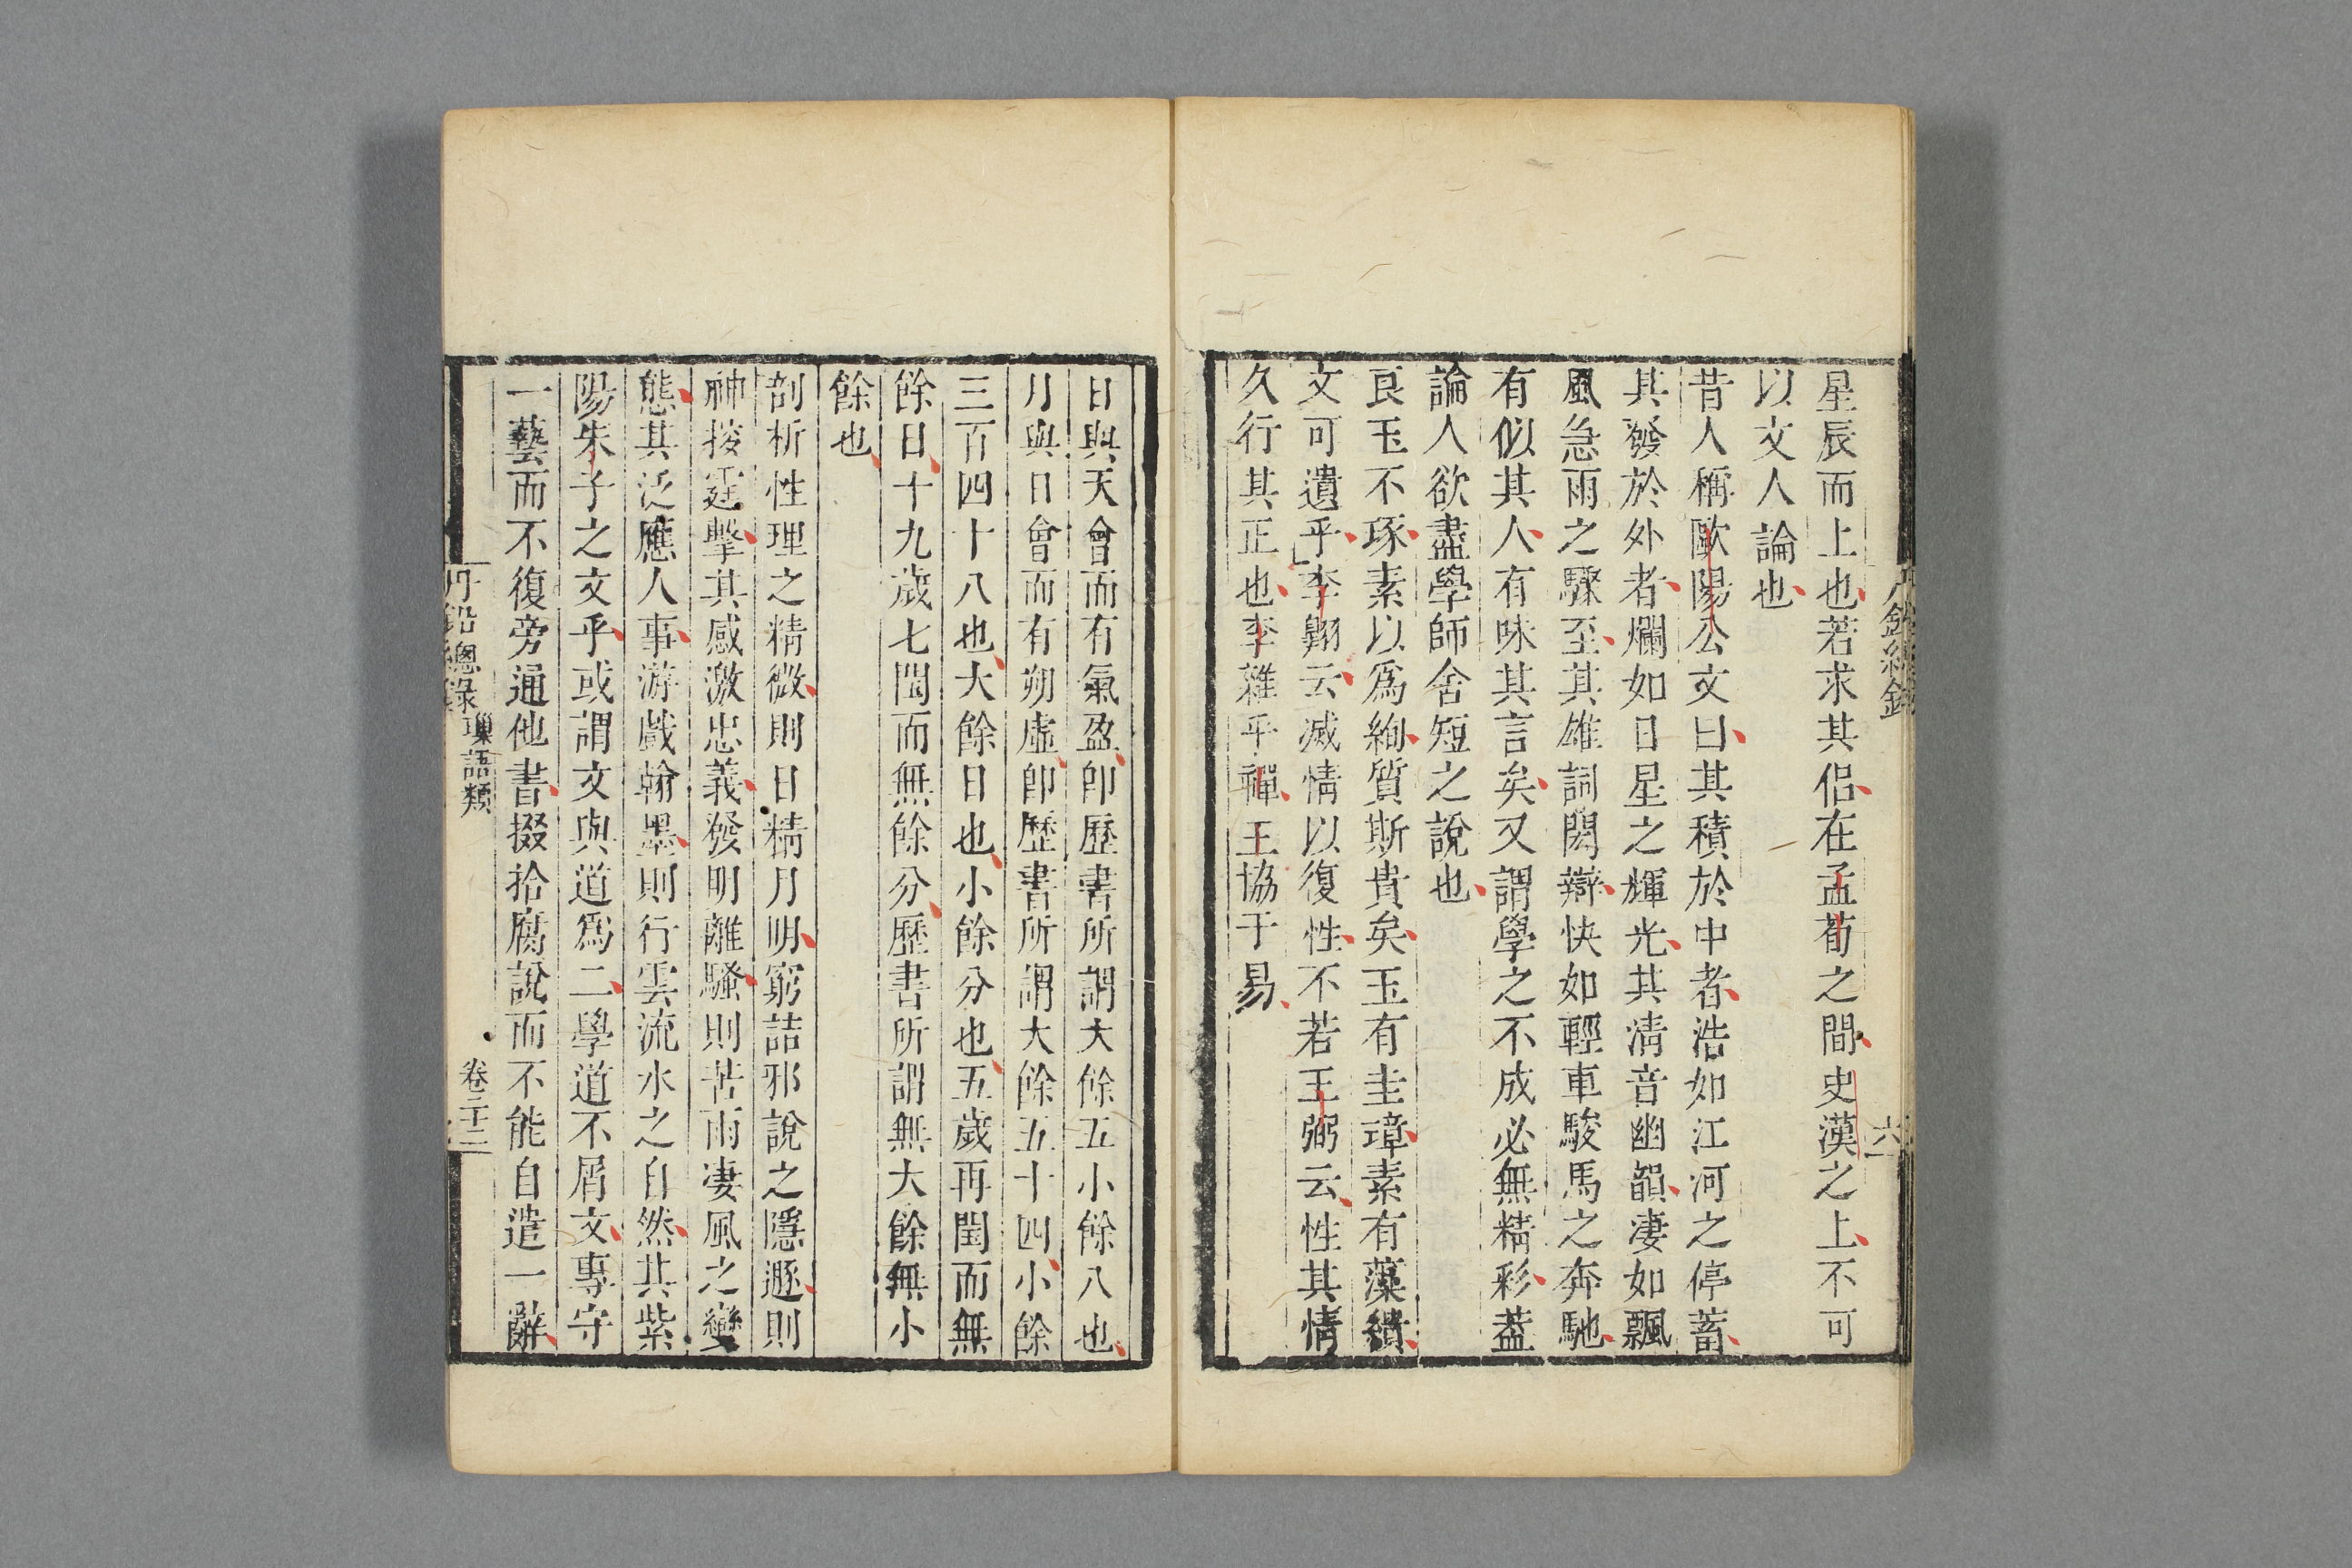 星辰而上也若求其侣在孟荀之間史漢之上不可
以文人論也
昔人稱歐陽公文曰其積於中者浩如江河之停蓄
其發於外者爛如日星之輝光其清音幽韻凄如飄
風急雨之驟至其雄詞閎辯快如輕車駿馬之奔馳
有似其人有味其言矣又謂學之不成必無精彩葢
論人欲盡學師舍短之說也
良玉不琢素以爲絢質斯貴矣玉有圭璋素有藻繢
文可遺乎李翺云滅情以復性不若王弼云性其情
久行其正也李雜乎禪王協于易
日與天會而有氣盈卽歷書所謂大餘五小餘八也
月與日會而有朔虛卽歷書所謂大餘五十四小餘
三百四十八也大餘日也小餘分也五歲再閏而無
餘日十九歲七閏而無餘分歷書所謂無大餘無小
餘也
剖析性理之精微則日精月明窮詰邪說之隱遯則
神搜霆擊其感激忠義發明離騷則苦雨凄風之變
態其泛應人事游戲翰墨則行雲流水之自然其紫
陽朱子之文乎或謂文與道爲二學道不屑文專守
一藝而不復旁通他書掇拾腐說而不能自遣一辭
丹鉛總錄 璅語類 卷二十二
六